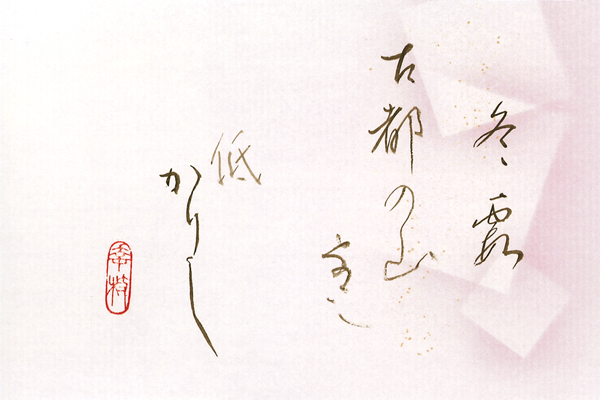 冬霞
古都の山
低
かりし